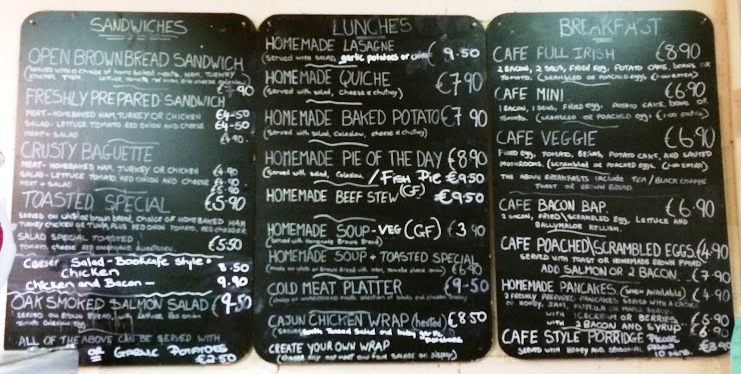 SANDWICHES
OPEN BROWNBREAD SANDWICH
(served with a choice of home baked meats, HAM, TURKEY
FRESHLY PREPARED SANDWICH
MEAT - HOMEBAKED HAM, TURKEY OR CHICKEN €4-50
SALAD - LETTUCE TOMATO RED ONION AND CHEESE €4-50
MEAT + SALAD
CRUSTY BAGUETTE
MEAT - HOMEBAKED HAM, TURKEY OR CHICKEN
SALAD - LETTUCE TOMATO RED ONION AND CHEESE
MEAT + SALAD
TOASTED SPECIAL €5-90
SERVED ON WHITE or brown bread, CHOICE OF HOMEBAKED HAM
TURKEY CHICKEN OR TUNA, PLUS RED ONION TOMATO, RED CHEDDAR
SALAD SPECIAL TOASTED €5-50
Caeser Salad - Bookcafe Style -
Chicken 8.50
Chicken and Bacon - 9.90
OAK SMOKED SALMON SALAD 9-50
SERVED ON BROWN BREAD, with Lettuce, Red onion
ALL OF THE ABOVE CAN BE SERVED WITH
OR GARLIC POTATOES
€2.50
LUNCHES
HOMEMADE LASAGNE €9.50
(served with salad, garlic potatoes or
HOMEMADE QUICHE €7 90
(Served with salad, Coleslaw, cheese & chutney)
HOMEMADE BAKED POTATO €7 90
(served with salad, Coleslaw, cheese & chutney)
HOMEMADE PIE OF THE DAY €8 90
(Served with salad, Coleslaw) / FISH PIE €9.50
HOMEMADE BEEF STEW (GF) €9.50
HOMEMADE SOUP - VEG (GF) €3 90
(Served with Homemade Brown Bread)
HOMEMADE SOUP + TOASTED SPECIAL
COLD MEAT PLATTER €9-50
CAJUN CHICKEN WRAP (heated) €8 50
CREATE YOUR OWN WRAP
(choose any one meat and four salads on display)
BREAKFAST
CAFE FULL IRISH €8 90
2 BACON, 2 SAUS, FRIED EGG, POTATO CAKE, BEANS OR
TOMATO. (SCRAMBLED OR POACHED EGGS €1-00 EXTRA)
CAFE MINI €6 90
1 BACON, 1 SAUS, FRIED EGG, POTATO CAKE, BEANS OR
TOMATO. (SCRAMBLED OR POACHED EGGS €1-00 EXTRA)
CAFE VEGGIE €6 90
FRIED EGG, TOMATO, BEANS, POTATO CAKE, AND SAUTED
MUSHROOMS. (SCRAMBLED OR POACHED EGGS €1-00 EXTRA)
THE ABOVE BREAKFASTS INCLUDE TEA / BLACK COFFEE
TOAST OR BROWN BREAD
CAFE BACON BAP €6-90
2 BACON, FRIED \ SCRAMBLED EGG, LETTUCE AND
BALLYMALOE RELLISH.
CAFE POACHED \ SCRAMBLED EGGS €4-90
SERVED WITH TOAST OR HOMEMADE BROWN BREAD
ADD SALMON OR 2 BACON - €7-90
HOMEMADE PANCAKES (when available) €4 90
2 FRESHLY PREPARED PANCAKES SERVED WITH A CHOICE
OF HONEY, JAM, NUTELLA OR MAPLE SYRUP
WITH ICECREAM OR BERRIES €5-90
WITH 2 BACON AND SYRUP
CAFE STYLE PORRIDGE PLEASE
SERVED WITH HONEY AND SEASONAL
10 MINS.